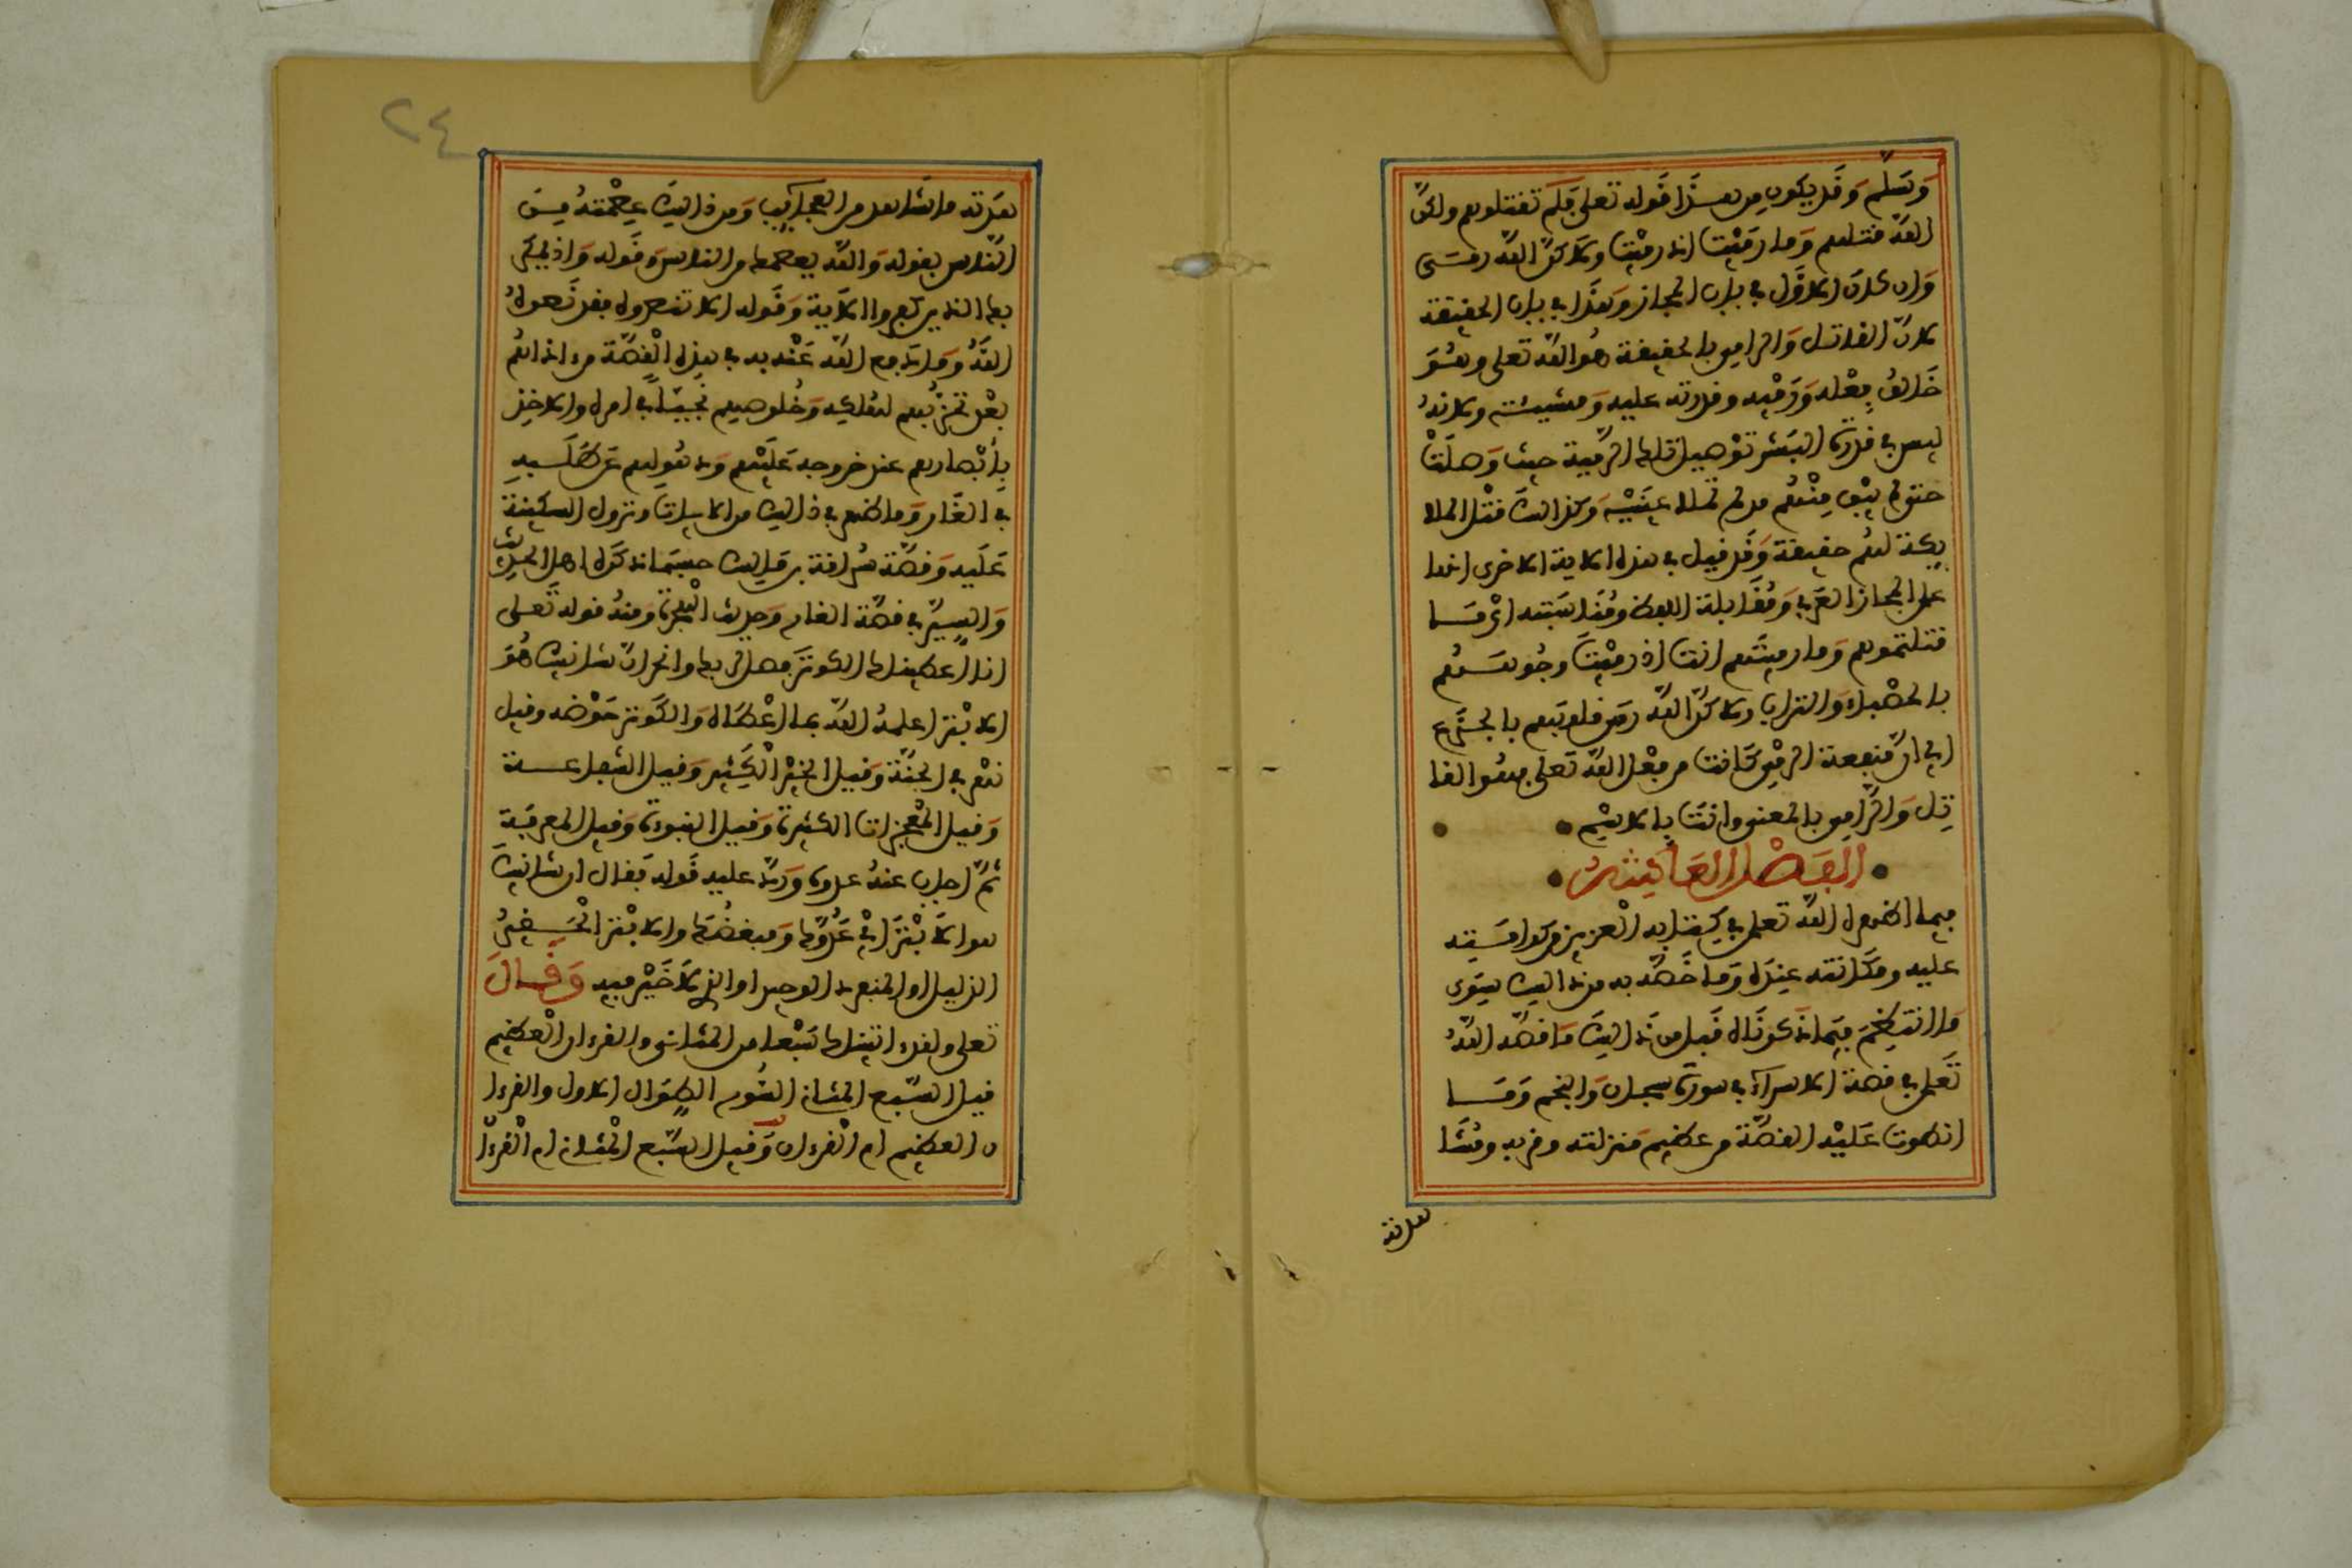 وَسَلَّم وَقَد يكون من هَذَا قَوله تعلى فَلَم تقتلوهم ولكنّ
اللّه قتلهم وَما رَمَيْت اذ رمَيْت ولاكنّ اللّه رمــى
وَان كان الاوّل في باب المجاز وَهذا في باب الحقيقة
لانّ القاتل وَالرامي بالحقيقة هُو اللّه تعلى وهُوَ
خَالقُ فِعْله وَرَمْيه وقدرته عليه وَمشيئته ولانهُ
ليس في قدرة البَشر توصيل تلك الرّمية حيث وَصلَتْ
حتى لم يَبْق مِنْهُم من لم تملا عينَيْه وَكذالك قتْل الملا
يكة لهُم حقيقة وَقد قيل في هذه الاية الاخرى انها
على المجاز العَرَبي وَمُقَابلة اللفظ ومُنَاسَبَته ايْ مَــا
قتلتموهم وَما رميتَهم انت اذ رَمَيْت وجُوهَــهُم
بالحصْباء وَالتراب ولاكنّ اللّه رمى قلوبَهم بالجَزَع
اي انّ مَنفعة الرمْي كَانت من فِعْل اللّه تَعلى فهُو القا
تِل وَالرَّامِي بالمعنى وانتَ بالاسْم
الفَصْل العَاشرُ
فيما اظهره اللّه تعلى في كِتابه الْعزيز من كرامَــته
عليه ومكَانته عِندَه وَما خَصّه به من ذالك سِوَى
مَا انتظَمَ فيمَا ذَكرنَاه قَبل من ذَالكَ مَا قصّه اللّهُ
تَعلى في قصة الاسراءِ في سورة سبحان وَالنجم وَمَــا
انطوت عَليْه القصّة من عظيم مَنزلته وقربه ومُشَا
هدته
هدَته ما شَاهد من العجَايِب وَمن ذالكَ عِصْمَتهُ مِنَ
النَّاس بقوله وَاللّه يعصمك من الناس وَقوله وَاذ يمكر
بك الذين كفروا الاَية وَقَوله الا تنصروه فقد نَصرهُ
اللّهُ وَمَا دَفع اللّه عَنْه به في هذه الْقصّة من اذاهُم
بعْد تَحزّبُهم لهُلكه وَخُلوصِهِم نجِيّاً في امره والاخذِ
بأبْصارهم عند خروجه عَليْهم وَذهُولهم عَن طَلَــبهِ
في الغَار وَما ظهر في ذالك من الايات وَنزول السكينة
عَلَيه وَقصّة سُراقة بن مَالِك حسبَما ذكَرَه اهل الحدِيث
وَالسِيَر في قصّة الغار وَحديث الْهجرة وَمنهُ قوله تَعلى
انا اعطيناك الكوثَر فصل لربك وانحر انّ شانئك هُوَ
الابْتر اعلمهُ اللّه بما اعْطَاه وَالكَوثر حَوْضه وقيل
نهْر في الجنّة وَقيل الخيْر الْكَثير وَقيل الشفاعــة
وَقيل المُعْجزات الكثيرة وَقيل النبوءة وَقيل المعرفَة
ثُمّ اجاب عنهُ عدوه وَردّ عليه قَوله فَقال ان شانئكَ
هو الاَبْتَر ايْ عَدُوّكَ وَمبغضُكَ والابْتر الْحَــقيرُ
الذليل او المنفرد الوحيد او الذي لاَ خَيْر فيه وَقَــالَ
تعلى ولقد اتيناك سَبْعا من المثاني والقرءان الْعظيم
قيل السّبع المثاني السُّور الطِوَال الاول والقرءا
ن العظيم ام الْقرءان وَقيل السّبع الْمثاني ام الْقرءا
٢٤